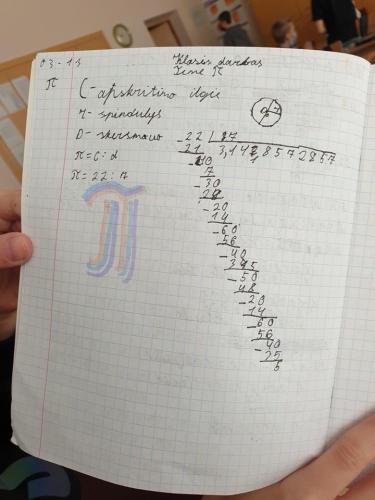 03-13
Klasės darbas
Tema π
π
C-apskritimo ilgis
r- spindulys
D- skersmuo
π=C:d
π=22:7
d r
-22|87
21 3,1428572857
-10
7
-30
28
-20
14
-60
56
-40
345
-50
48
-20
14
-60
56
-40
-35
5
π